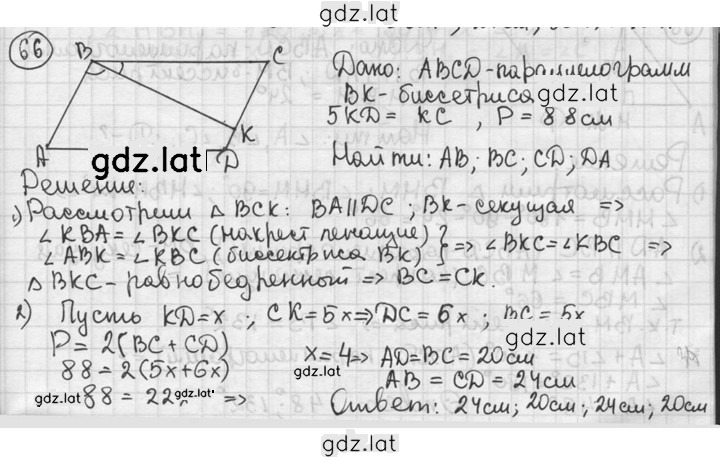 gdz.lat
66
B C
A D K
Дано: ABCD-параллелограмм
BK-биссетриса
gdz.lat
5KD= KC , P= 88см
gdz.lat
Найти: AB; BC; CD; DA
Решение:
1) Рассмотрим △ BCK: BA||DC ; BK-секущая =>
∠ KBA = ∠ BKC (накрест лежащие) } => ∠BKC=∠KBC =>
∠ ABK = ∠ KBC (биссектриса BK)
△ BKC-равнобедренный => BC=CK.
2) Пусть KD=x ; CK=5x => DC=6x ; BC=5x
gdz.lat
P= 2(BC+CD)
88=2(5x+6x)
88=22 =>
gdz.lat gdz.lat
x=4 => AD=BC=20см
gdz.lat
AB = CD = 24см
Ответ: 24см; 20см; 24см; 20см
gdz.lat